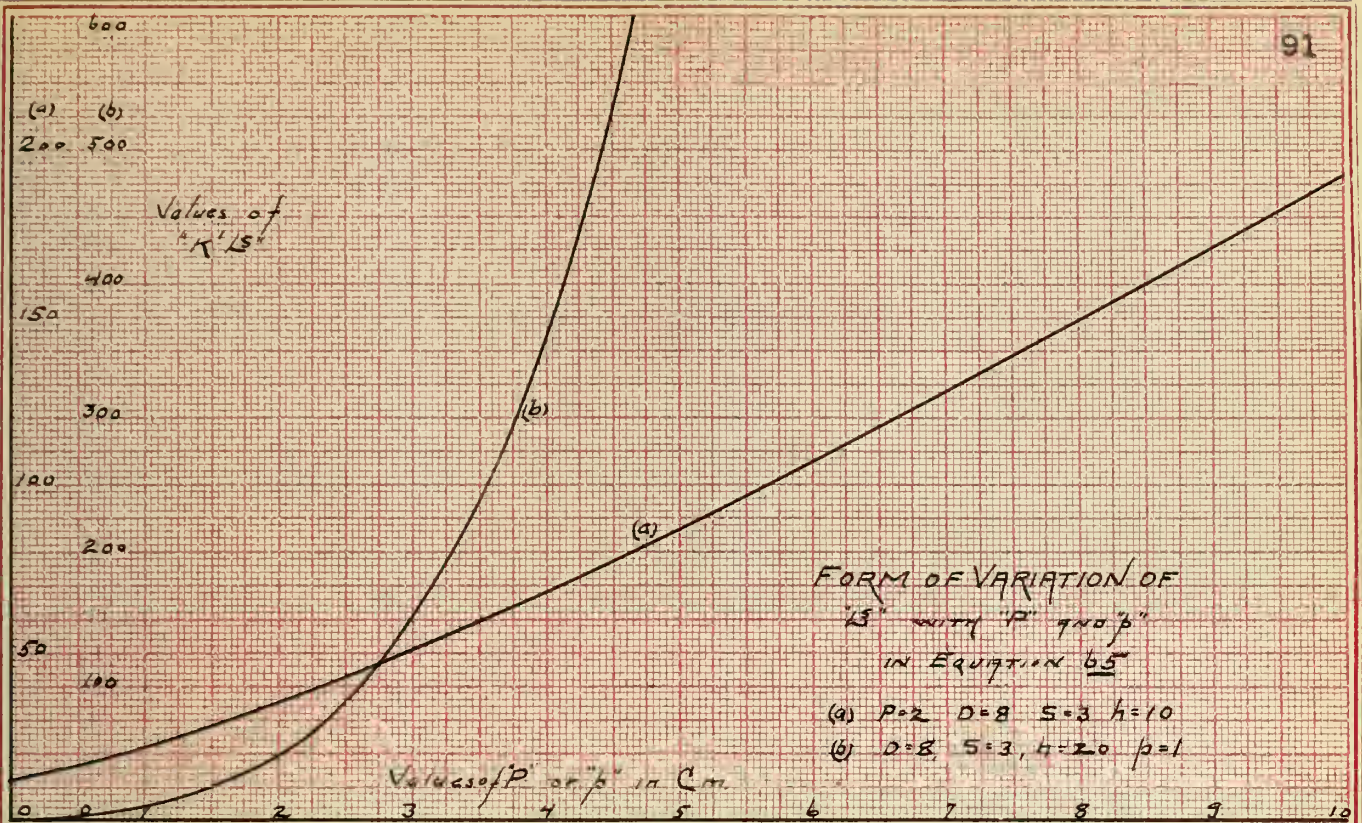 600
91
(a) (b)
200 500
Values of
"K' LS"
400
150
300
(b)
100
200
(a)
FORM OF VARIATION OF
WITH "P" AND "p"
50
IN EQUATION 65
100
(a) P=2 D=8 S=3 h=10
(b) D=8, S=3, h=20 p=1
Values of "P" or "p" in Cm.
0 0 1 2 3 4 5 6 7 8 9 10